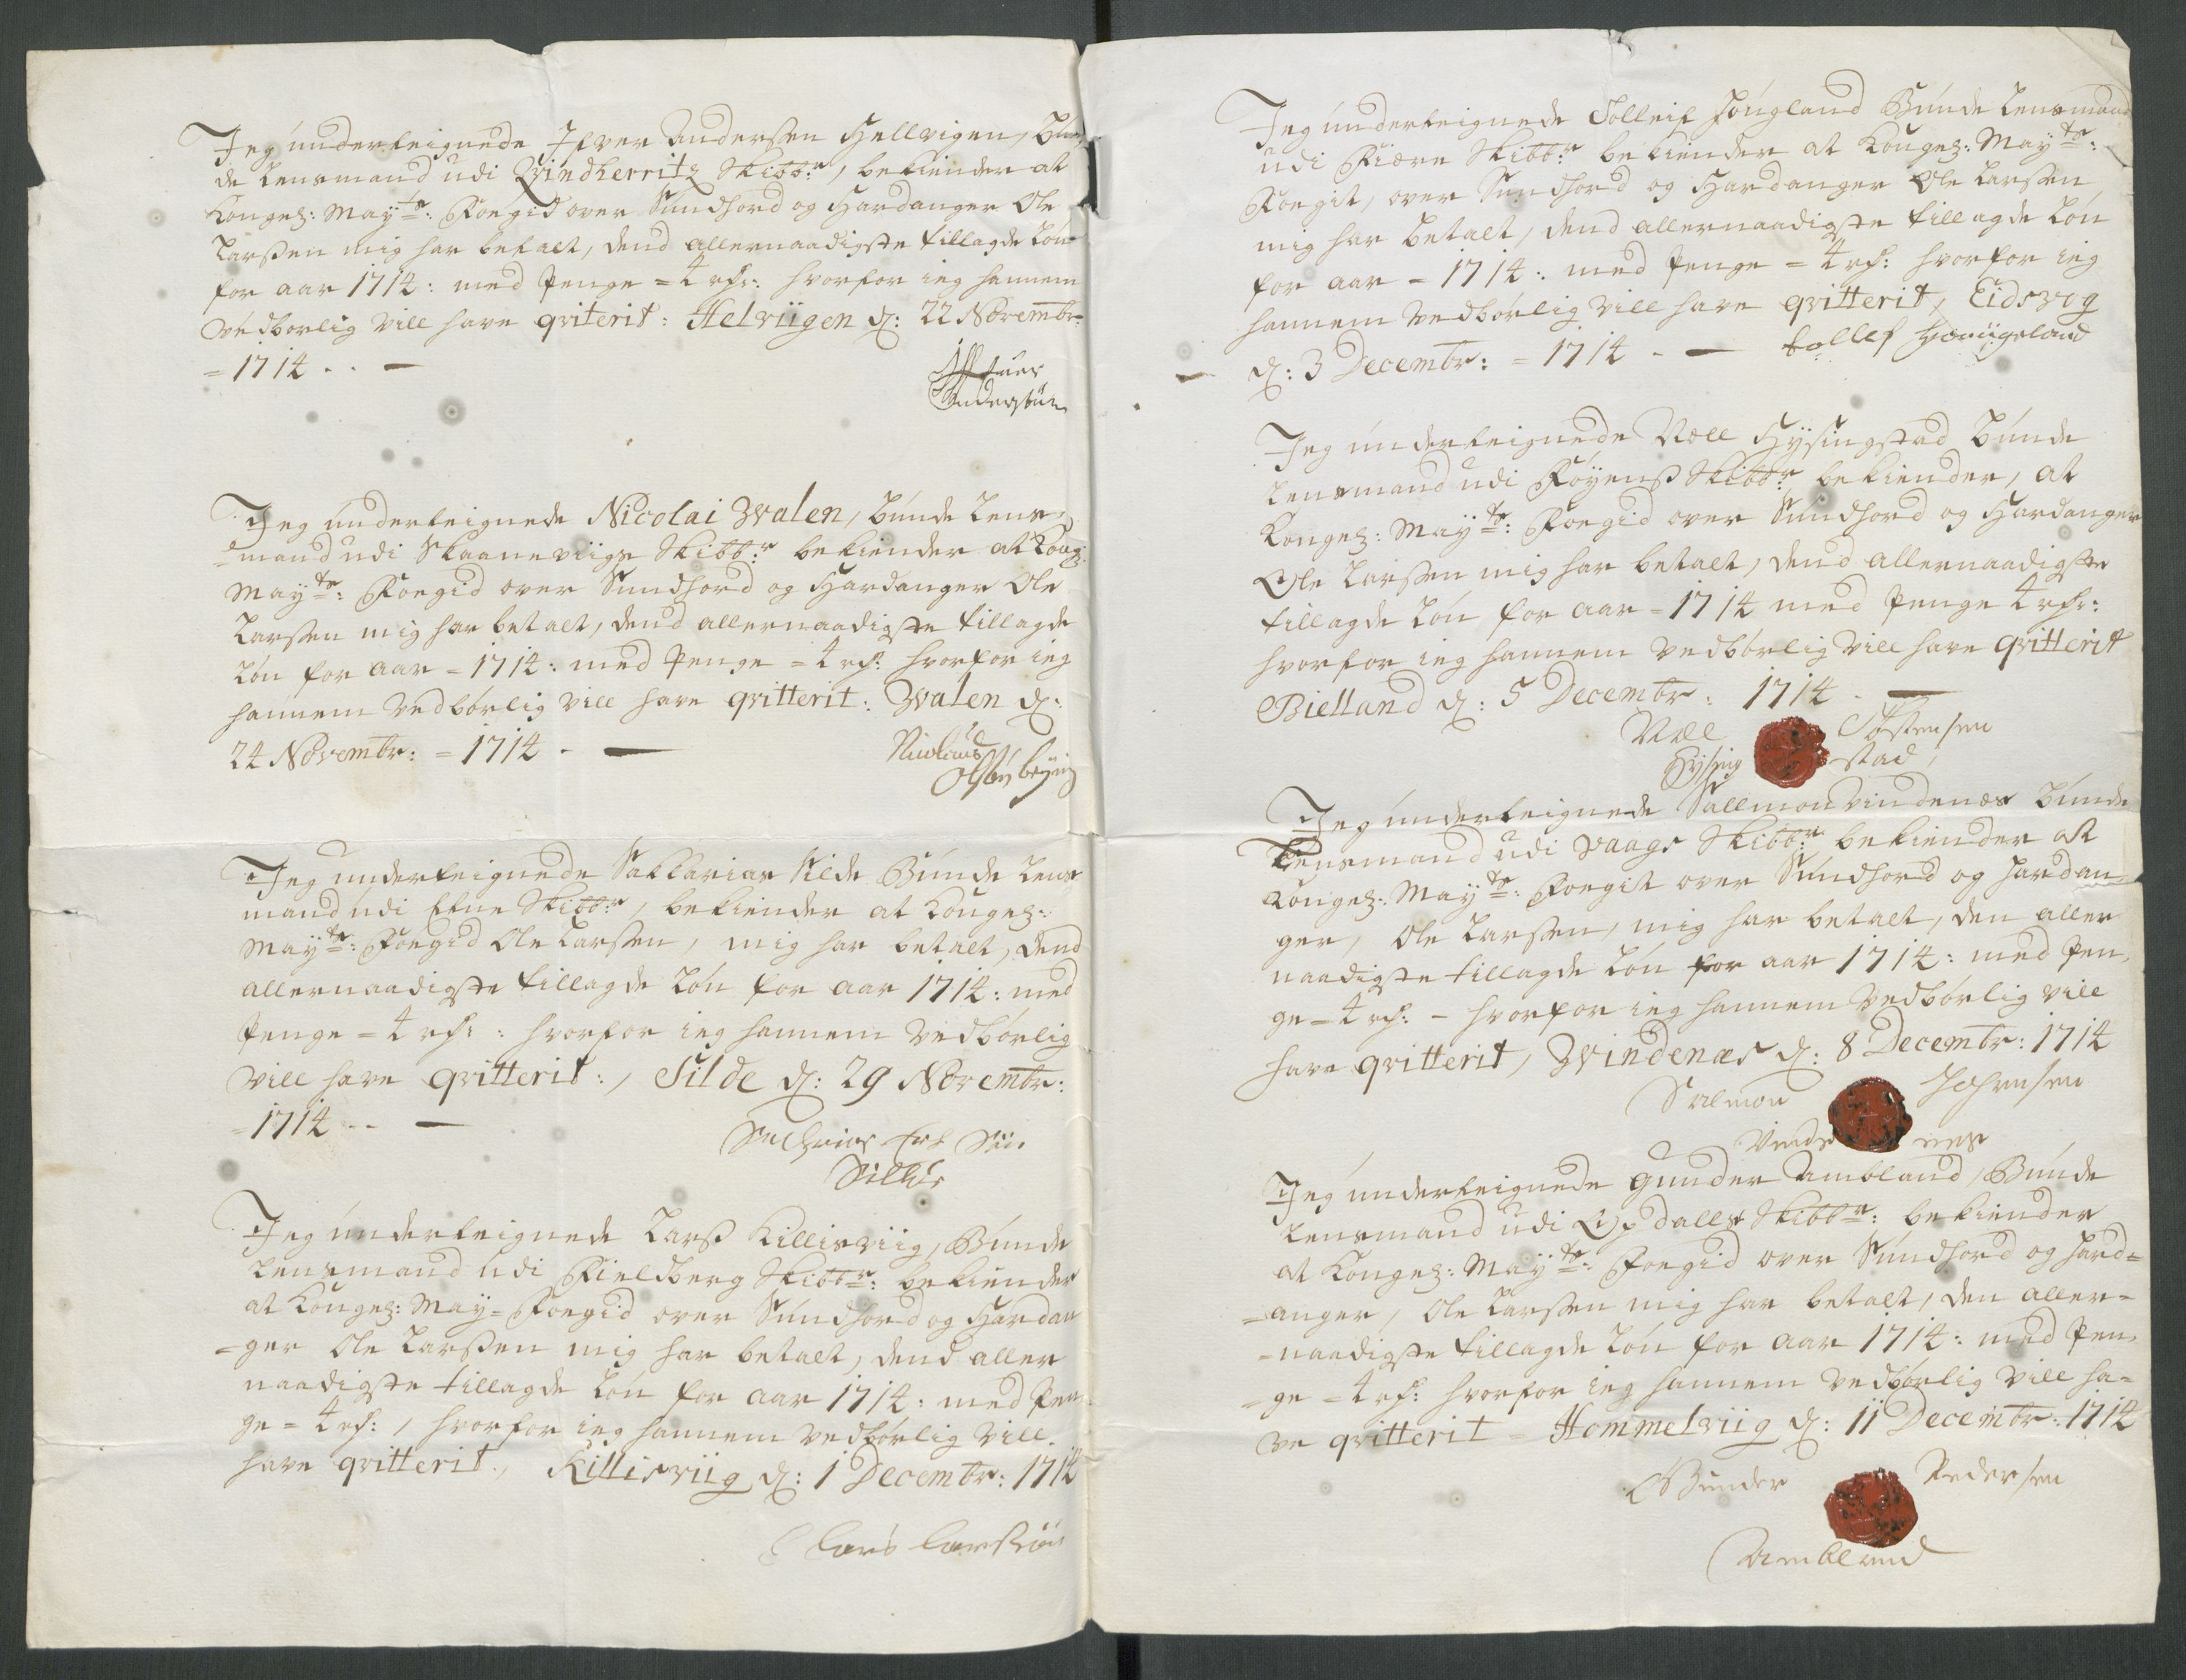 Jeg underteignede Ifver Andersen Hellvigen, Bun„
de Lensmand udi Qvindherritz Skibbr:, bekiender at
Kongel: Mayts: Foegid over Sundhord og Hardanger Ole
Larssen mig har betalt, dend allernaadigste tillagde Løn
for aar 1714: med Penge = 4 rdr: hvorfor ieg hannem
vedbørlig vill have qviterit: Helvigen d: 22 Novembr:
= 1714 . . —
Iffuer
Andersøn
Jeg underteignede Nicolai Walen, bunde Lens„
„mand udi Skaaneviigs Skibbr: bekiender at Kong:
Mayts: Foegid over Sundhord og Hardanger Ole
Larssen mig har betalt, dend allernaadigste tillagde
Løn for aar = 1714: med Penge = 4 rdr: hvorfor ieg
hannem vedbørlig vill have qvitterit: Walen d:
24 Novembr: = 1714 . —
Nicolaus
Jeg underteignede Sacharias Silde Bunde Lens
mand udi Etne Skibbr, bekiender at Kongel:
Mayts: Foegid Ole Larssen, mig har betalt, dend
allernaadigste tillagde Løn for aar 1714: med
Penge = 4 rdr: hvorfor ieg hannem vedbørlig
vill have qvitterit:, Silde d: 29 Novembr:
= 1714 . . —
Sachrias
Sille
Jeg underteignede Larss Killisviig, Bunde
Lensmand udi Fieldberg Skibbr: bekiender
at Kongel: May= Foegid over Sundhord og Hardan
=ger Ole Larssen mig har betalt, dend aller
naadigste tillagde Løn for aar 1714: med Pen„
ge = 4 rdr:, hvorfor ieg hannem vedbørlig vill
have qvitterit, Killisviig d: 1 Decembr: 1714
Lars Larssøn
Jeg underteignede Tolleif Høugland Bunde Lensmand
udi Fiære Skibbr: bekiender at Kongel: Mayts:
Foegit, over Sundhord og Hardanger Ole Larssen
mig har betalt, dend allernaadigste tillagde Løn
for aar = 1714: med Penge = 4 rdr: hvorfor ieg
hannem vedbørlig vill have qvitterit, Eidsvog
d: 3 Decembr: = 1714 . — tollef Houigeland
Jeg underteignede Næll Hysingstad bunde
Lensmand udi Føyens Skibbr: bekiender, at
Kongel: Mayts: Foegid over Sundhord og Hardanger
Ole Larssen mig har betalt, dend allernaadigste
tillagde Løn for aar = 1714 med Penge 4 rdr:
hvorfor ieg hannem vedbørlig vill have qvitterit
Bielland d: 5 Decembr: 1714 . —
Næll Østensen
Hysing stad,
Jeg underteignede Sallmon Vindenæs bunde
Lensmand udi Vaags Skibbr: bekiender at
Kongel: Mayts: Foegit over Sundhord og Hardan„
ger, Ole Larssen, mig har betalt, den aller
naadigste tillagde Løn for aar 1714: med Pen„
ge = 4 rdr: – hvorfor ieg hannem vedbørlig vill
have qvitterit, Windenæs d: 8 Decembr: 1714
Salmon Johansen
Vinde nes
Jeg underteignede Gunder Ambland, Bunde
Lensmand udi Opdalls Skibbr: bekiender
at Kongel: Mayts: Foegid over Sundhord og Hard=
=anger, Ole Larssen mig har betalt, den aller=
=naadigste tillagde Løn for aar 1714: med Pen„
=ge = 4 rdr: hvorfor ieg hannem vedbørlig vill ha=
ve qvitterit = Hommelviig d: 11 Decembr: 1714
Gunder Pedersen
Ambland